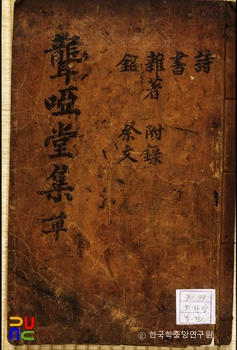 詩
書
雜著 附錄
銘 祭文
聾啞堂集 單
ⓒ 한국학중앙연구원